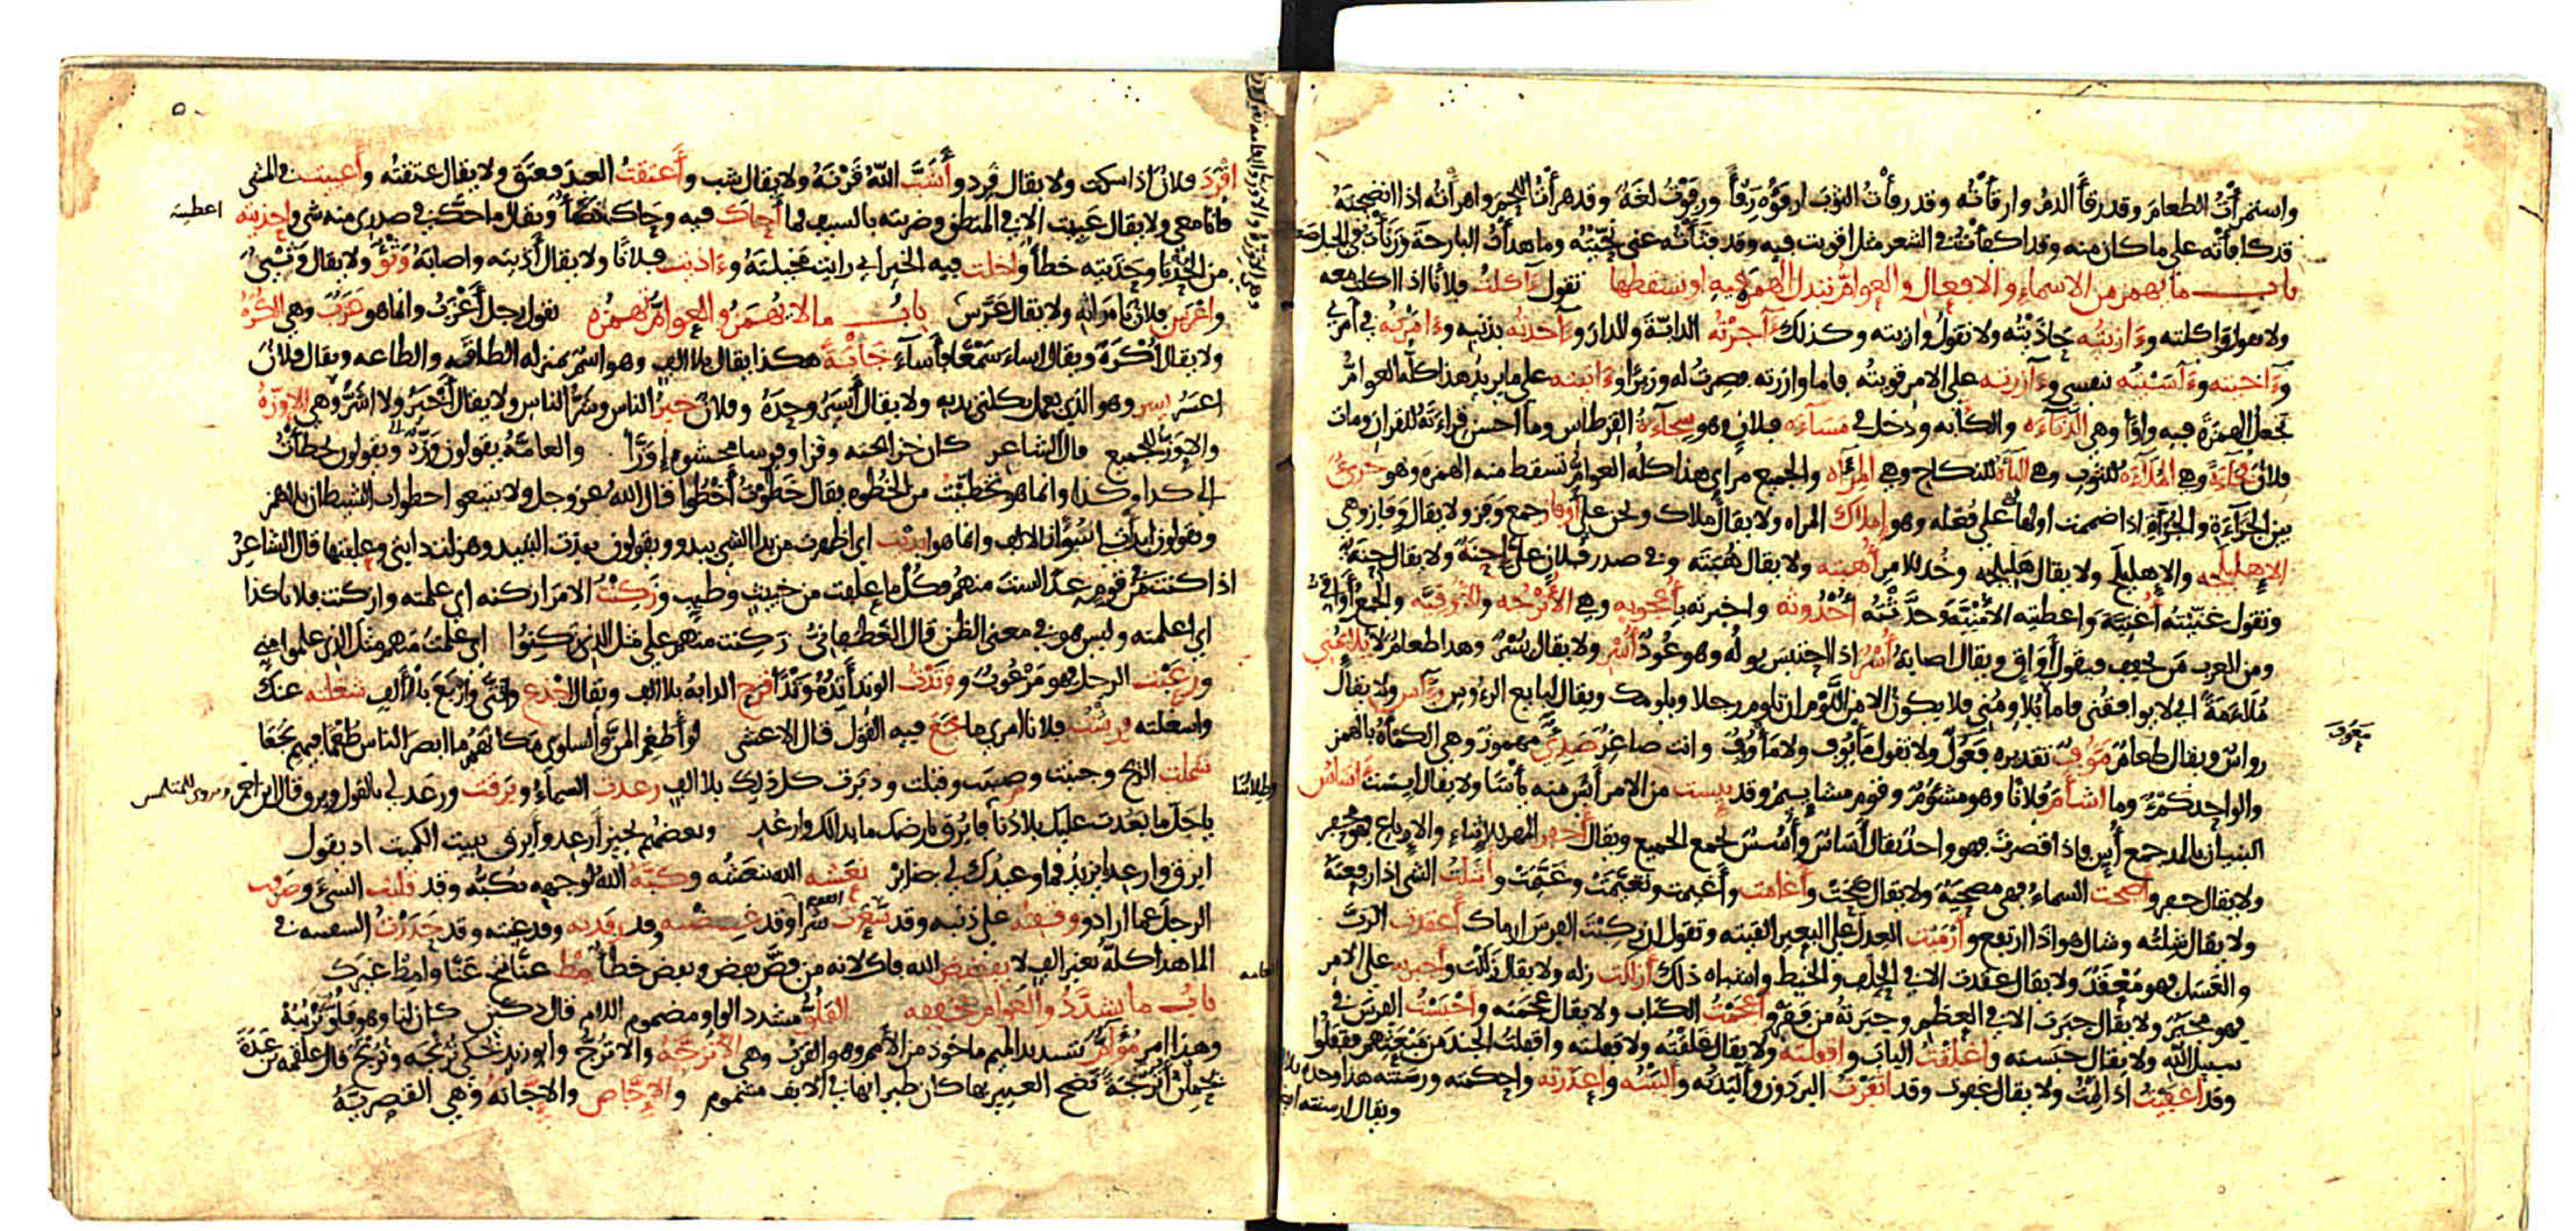 واستمرأت الطعام وقد رقأ الدم وارقأته وقد رفأت الثوب ارفؤه رفأ ورفوت لغة وقد هرأت اللحم واهرأته اذا انضجته
قد كافأته على ما كان منه وقد اكفأت في الشعر مثل اقويت فيه وقد فثأته عني نحيته وما هدأت البارحة وزنأت في الجبل صعدت
باب ما يهمز من الاسماء والافعال والعوام تبدل الهمز فيه او تسقطها تقول ءاكلت فلانا اذا اكلت معه
ولا تقول واكلته وءازيته حاذيته ولا تقول وازيته وكذلك ءآجرته الدابة والدار وءآخذته بذنبه وءامرته في امري
وءآخيته وءآسيته بنفسي وءآزرته على الامر قويته فاما وازرته فصرت له وزيرا وءاتيته على ما يريد هذا كله العوام
تجعل الهمزة فيه واوا وهي الدناءة والكآبة ودخل في مساءة فلان وهو سحاءة القرطاس وما احسن قراءته للقران ومات
فلان فجاءة وهي الملاءة للثوب وهي الباءة للنكاح وهي المرآه والجميع مراى هذا كله العوام تسقط منه الهمزة وهو جرئ
بين الجراءة والجرأة اذا ضممت اولها على فعله وهو إملاك المراه ولا يقال ملاك ونحن على أوفاز جمع وفز ولا يقال وفاز وهي
الإهليلجه والإهليلج ولا يقال هليلجه وخذ للامر أهبته ولا يقال هبته وفي صدر فلان علي إحنة ولا يقال حنة
وتقول غنيته أغنية واعطيته الأمنية وحدثته أحدوثة واخبرته بأعجوبة وهي الأترجه والاوقيه والجمع أواقي
ومن العرب من يخفف فيقول أواق ويقال اصابه أسر اذا احتبس بوله وهو عود أسر ولا يقال يسر وهذا طعام لا يلائمني
ملاءمة اي لا يوافقني فاما يلاومني فلا يكون الا من اللوم ان تلوم رجلا ويلومك ويقال لبايع الرءوس رءآس ولا يقال
رواس ويقال طعام مؤوف تقديره فعول ولا تقول مأيوف ولا مأووف وانت صاغر صدئ مهموز وهي الكمأة بالهمز
والواحد كمء وما اشأم فلانا وهو مشئوم وقوم مشاييم وقد يئست من الامر أيأس منه يأسا ولا يقال ايست آساس
البنيان بالمد جمع أس فاذا قصرت فهو واحد يقال أساس وأسس لجمع الجميع ويقال أحفر المهر للاثناء والارباع فهو محفر
ولا يقال حفر وأصحت السماء فهي مصحية ولا يقال صحت وأغامت وأغيمت وتغيمت وغيمت وأشلت الشئ اذا رفعته
ولا يقال شلته وشال هو اذا ارتفع وأرميت العدل على البعير القيته وتقول ان ركبت الفرس ارماك أعقدت الرب
والعسل فهو معقد ولا يقال عقدت الا في الحلف والخيط واشباه ذلك أزللت زله ولا يقال زللت وأجبرته على الامر
فهو مجبر ولا يقال جبرت الا في العظم وجبرته من فقر وأعجمت الكتاب ولا يقال عجمته وأحبست الفرس في
سبيل الله ولا يقال حبسته واغلقت الباب واقفلته ولا يقال غلقته ولا قفلته واقفلت الجند من مبعثهم فقفلوا
وقد أعفيت اذا نمت ولا يقال غفوت وقد اثفرت البرذون وألبدته وألببته واعذرته واحكمته ورسنته هذا وحده بلا
ويقال ارسنته ايضا
معوف
اقرد فلان اذا سكت ولا يقال قرد وأشب الله قرنه ولا يقال شب وأعتقت العبد فعتق ولا يقال عتقته وأعييت في المشي
فانا معي ولا يقال عييت الا في المنطق وضربته بالسيف فما أحاك فيه وحاك خطأ ويقال ما حك في صدري منه شي واحذيته
اعطيته
من الحذيا وحذيته خطأ واخلت فيه الخير اي رايت مخيلته وءاذيت فلانا ولا يقال أذيته واصابه وثؤ ولا يقال وثي
واعرس فلان بامراته ولا يقال عرس باب ما لا يهمز والعوام تهمزه تقول رجل أعزب وانما هو عزب وهي الكرة
ولا يقال أكرة ويقال اساء سمعا فأساء جابة هكذا يقال بلا الف وهو اسم بمنزله الطاقه والطاعه ويقال فلان
اعسر يسر وهو الذي يعمل بكلتي يديه ولا يقال أيسر وحده وفلان خير الناس وشر الناس ولا يقال أخير ولا اشر وهي الاوزة
والاوز للجميع قال الشاعر كان خزا تحته وقزا وفرشا محشوه إوزا والعامة يقولون وزة ويقولون تخطأت
الى كذا وكذا وانما هو تخطيت من الخطوه يقال خطوت أخطوا قال الله عز وجل ولا تتبعوا خطوات الشيطان بلا همز
اذا كنت في قوم عدا لست منهم فكل ما علفت من خبيث وطيب وزكنت الامر ازكنه اي علمته وازكنت فلانا كذا
اي اعلمته وليس هو في معنى الظن قال الغطفاني زكنت منهم على مثل الذي زكنوا اي علمت منهم مثل الذي علموا مني
ورعبت الرجل فهو مرعوب ووتدت الوتد أتده وتدا قرح الدابه بلا الف ويقال اجذع واثنى واربع بالألف شغلته عنك
واسغلته ورشت فلانا امري ما نجع فيه القول قال الاعشى لو أطعموا المن والسلوى مكانهم ما ابصر الناس طعما فيهم نجعا
شملت الريح وجنبت وصبت وقبلت ودبرت كل ذلك بلا الف رعدت السماء وبرقت ورعد لي بالقول وبرق قال ابن احمر ويروى للمتلمس
وطلابنا
يا جل ما بعدت عليك بلادنا فابرق بارضك ما بدا لك وارعد وبعضهم يجيز أرعد وأبرق ببيت الكميت اذ يقول
ابرق وارعد يا يزيد فما وعيدك لي بضائر نعشه الله ينعشه وكبه الله لوجهه يكبه وقد قلبت الشئ وصرفت
الرجل عما اراد ووقفته على ذنبه وقد سعرت القوم شرا وقد غظته وقد رفدته وقد عبته وقد حدرت السفينة في
الما هذا كله بغير الف لا يفضض الله فاك لانه من فض يفض ويفض خطأ مط عنا تنح عنا وامط غيرك
باب ما يشدد والعوام تخففه الفلو مشدد الواو مضموم اللام قال دكين كان لنا وهو فلو نرببه
وهذا امر مؤام بتشديد الميم ماخوذ من الأمم وهو القرب وهي الأترجه والاترج وابو زيد يحكي ترنجه وترنج قال علقمه بن عبدة
يحملن أترجة نضح العبير بها كان تطيابها في الانف مشموم والإجاص والإجانه وهي القصرية